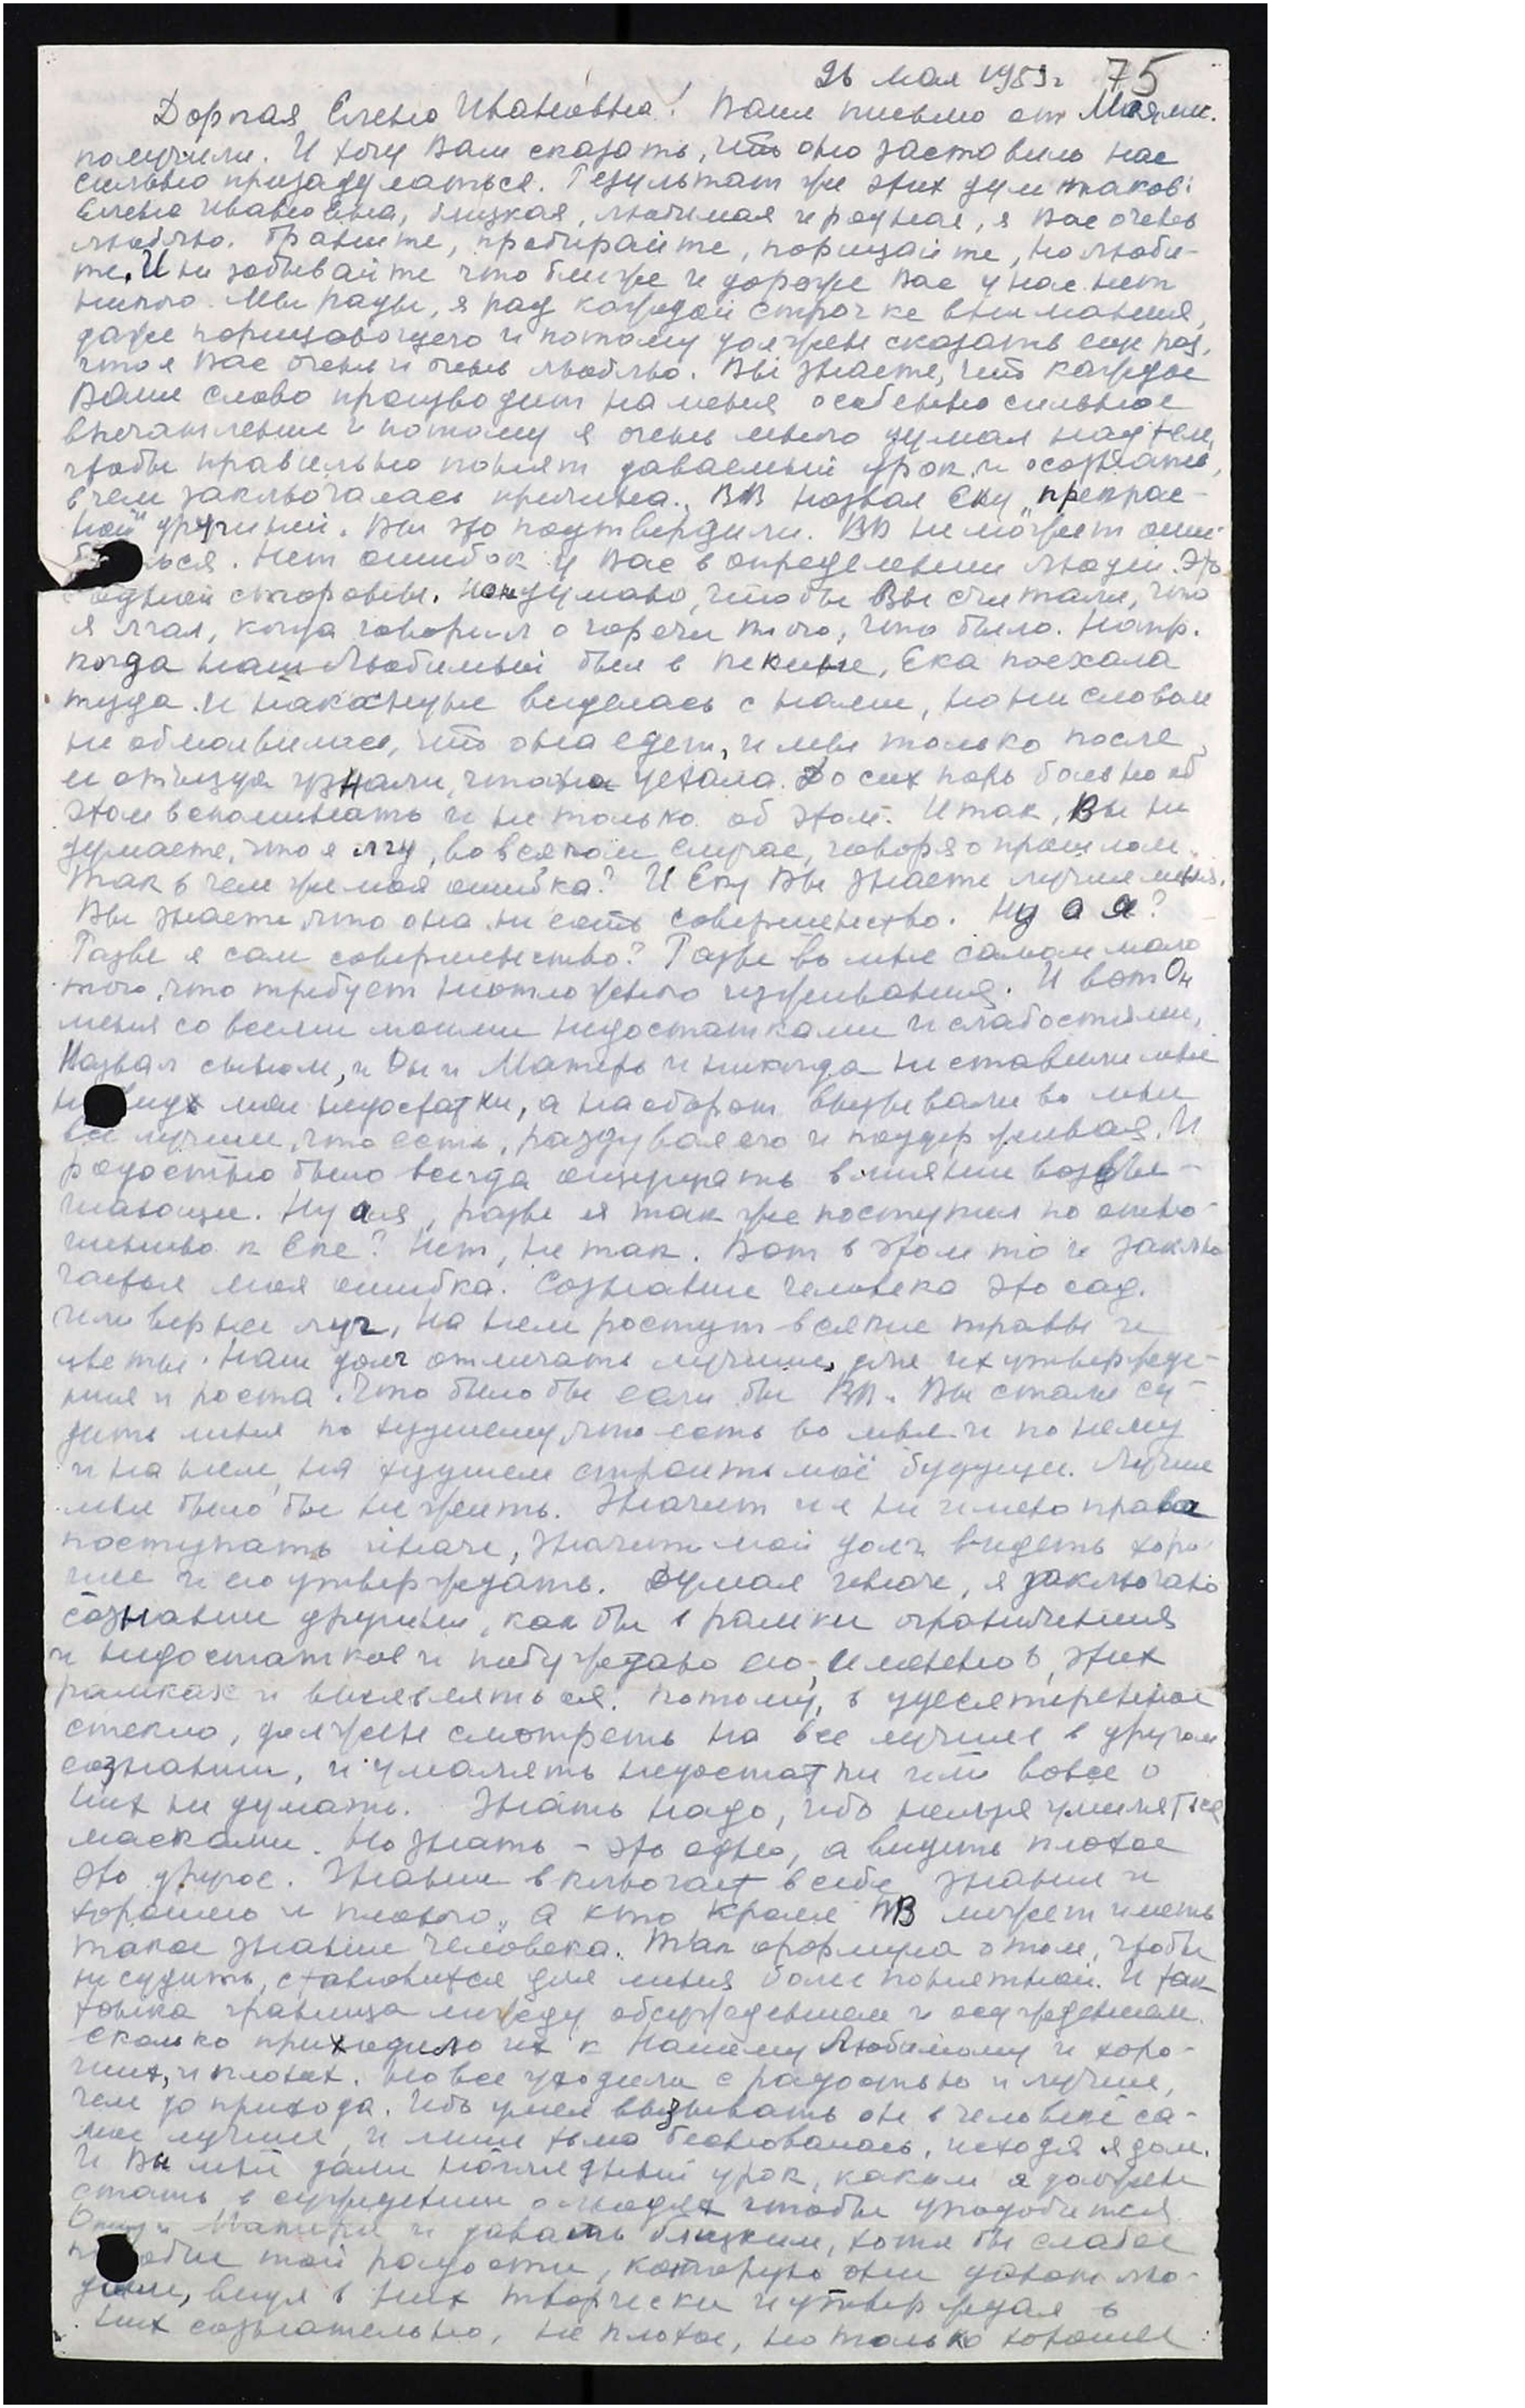 26 мая 1953г 75
Дорогая Елена Ивановна! Ваше письмо от
получили. И хочу Вам сказать, что оно заставило нас
сильно призадуматься. Результат же этих дум таков:
Елена Ивановна, близкая, любимая и родная, я Вас очень
люблю. Браните, пробирайте, порицайте, но люби-
те. И не забывайте что ближе и дороже Вас у нас нет
никого. Мы рады, я рад каждой строчке внимания,
даже порицающего и потому должен сказать еще раз,
что я Вас очень и очень люблю. Вы знаете, что каждое
Ваше слово производит на меня особенно сильное
впечатление и потому я очень много думал над тем,
чтобы правильно понять даваемый урок и осознать,
в чем заключалась причина. ВВ назвал Еку „прекрас-
ной" другиней. Вы это подтвердили. ВВ не может оши-
ься. Нет ошибок и у Вас в определении людей. Это
с одной стороны. Не думаю, чтобы Вы считали, что
я лгал, когда говорил о горечи того, что было. Напр.
когда наш Любимый был в Пекине, Ека поехала
туда. И накануне виделась с нами, но ни словом
не обмолвилась, что она едет, и мы только после
и отъезда узнали, что она уехала. До сих пор больно об
этом вспоминать и не только об этом. Итак, Вы не
думаете, что я лгу, во всяком случае, говоря о прошлом.
Так в чем же моя ошибка? И Еку Вы знаете лучше меня.
Вы знаете, что она не есть совершенство. Ну а я?
Разве я сам совершенство? Разве во мне самом мало
того, что требует неотложного изживания. И вот Он
меня со всеми моими недостатками и слабостями,
назвал сыном, и Он и Матерь и никогда не ставили мне
на вид мои недостатки, а наоборот вызывали во мне
все лучшее, что есть, раздувая его и поддерживая. И
радостно было всегда ощущать влияние возвы-
шающее. Ну а я, разве я так же поступил по отно-
шению к Еке? Нет, не так. Вот в этом то и заклю-
чается моя ошибка. Сознание человека это сад.
Или вернее луг, на нем растут всякие травы и
цветы. Наш долг отмечать лучшие, для их утвержде-
ния и роста. Что было бы если бы ВВ и Вы стали су-
дить меня по худшему, что есть во мне и по нему
и на нем, на худшем строить моё будущее. Лучше
мне было бы не жить. Значит и я не имею права
поступать иначе, значит мой долг видеть хоро-
шее и его утверждать. Думая иначе, я заключаю
сознание другини, как бы в рамки ограничения
и недостатков и побуждаю его, именно в этих
рамках и выявляться. Потому, в удесятеренное
стекло, должен смотреть на все лучшее в другом
сознании, и умалять недостатки или вовсе о
них не думать. Знать надо, ибо нельзя умиляться
масками. Но знать – это одно, а видеть плохое
это другое. Знание включает в себе знание и
хорошего и плохого, а кто кроме ВВ может иметь
такое знание человека. Так формула о том, чтобы
не судить, становится для меня более понятной. И так
тонка граница между обсуждением и осуждением.
Сколько приходило их к Нашему Любимому и хоро-
ших, и плохих. Но все уходили с радостью и лучше,
чем до прихода. Ибо умел вызывать он в человеке са-
мое лучшее, и лишь тьма бесновалась, исходя ядом.
И Вы мне дали наглядный урок, каким я должен
стать в суждении о людях чтобы уподобиться
Отцу и Матери и давать близким, хотя бы слабое
подобие той радости, которую они давали лю-
дям, видя в них творчески и утверждая в
них сознательно, не плохое, но только хорошее